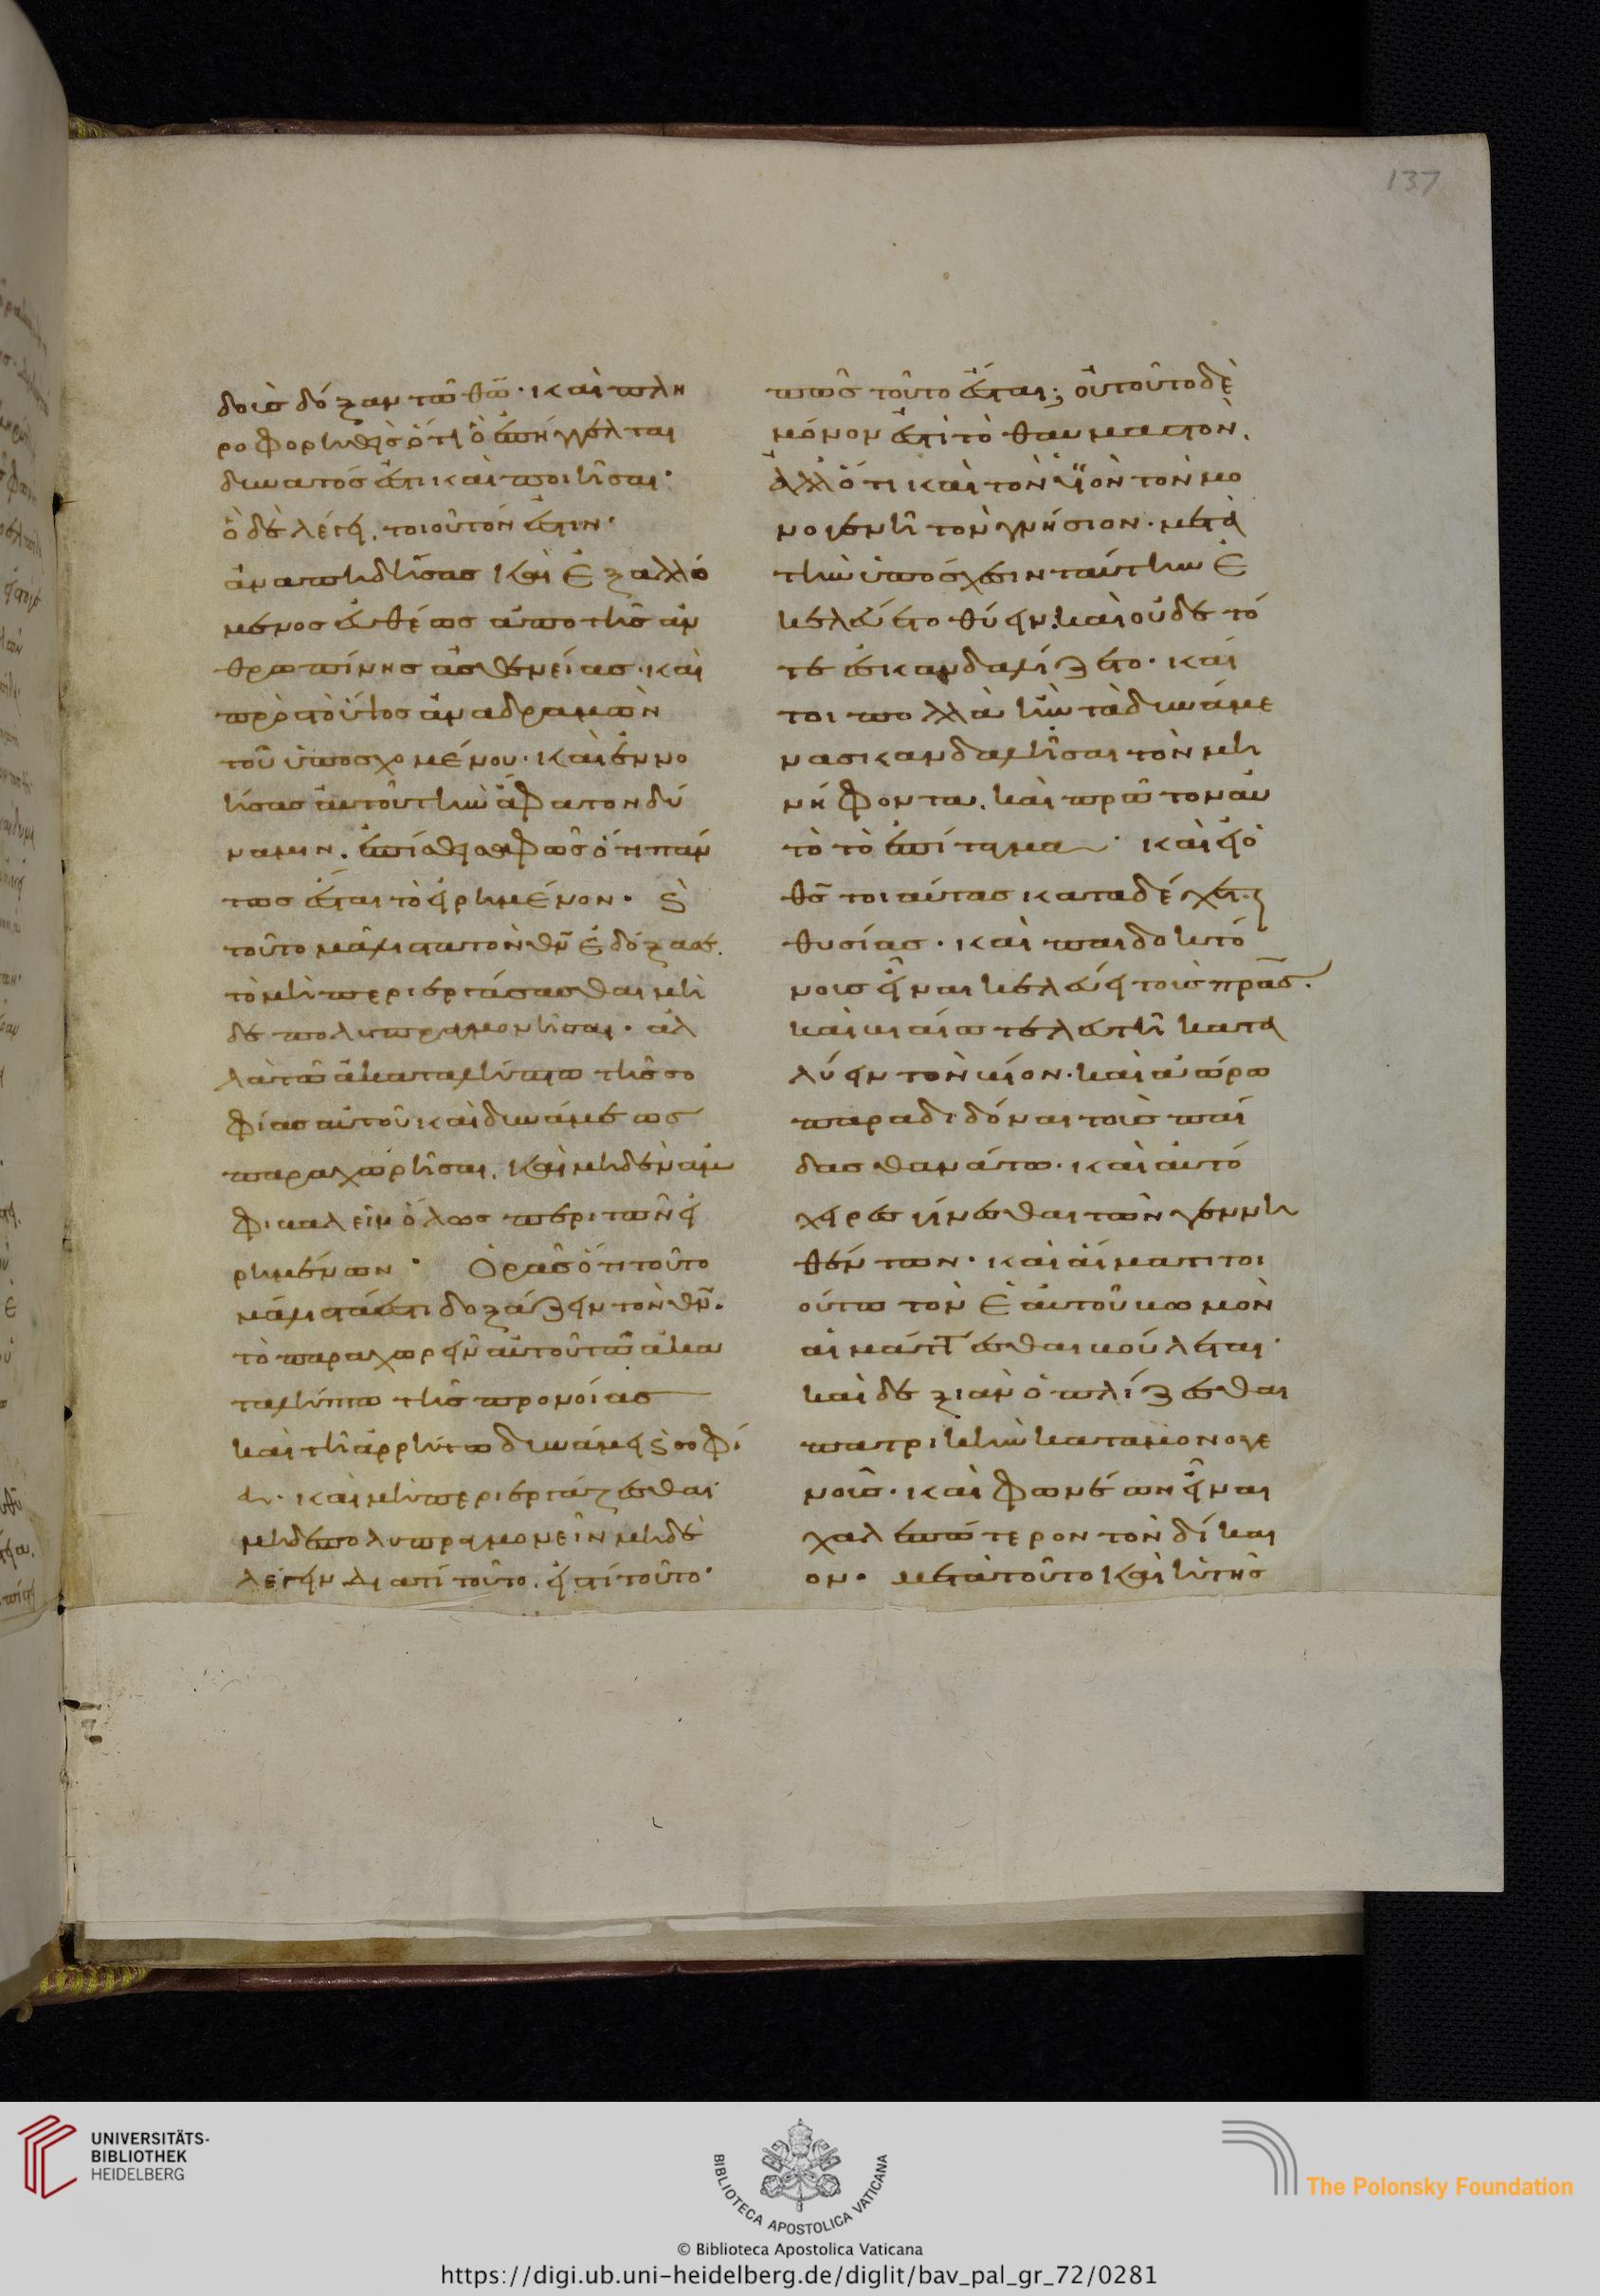 137
δοὺς δόξαν τῶ θῶ· καὶ πλη
ροφορηθεὶς ὅτι ὃ ἐπήγγελται
δυνατός ἐστι καὶ ποιῆσαι·
ὃ δὲ λέγει, τοιοῦτόν ἐστιν·
ἀναπηδήσας καὶ ἐξαλλό
μενος εὐθέως ἀπὸ τῆς ἀν
θρωπίνης ἀσθενείας· καὶ
πρὸς τὸ ὕψος ἀναδραμὼν
τοῦ ὑποσχομένου· καὶ ἐννο
ήσας αὐτοῦ τὴν ἄφατον δύ
ναμιν. ἐπίσθη σαφῶς ὅτι πάν
τως ἔσται τὸ εἰρημένον· καὶ
τοῦτο μάλιστα τὸν θν ἐδόξασε.
τὸ μὴ περιεργάσασθαι μη
δὲ πολυπραγμονῆσαι· ἀλ
λὰ τῶ ἀκαταλήπτω τῆς σο
φίας αὐτοῦ καὶ δυνάμεως
παραχωρῆσαι. καὶ μηδὲν ἀμ
φιβαλεῖν ὅλως περὶ τῶν εἰ
ρημένων· Ὁρᾶς ὅτι τοῦτο
μάλιστά ἐστι δοξάζειν τὸν θν.
τὸ παραχωρεῖν αὐτοῦ τῶ ἀκα
ταλήπτω τῆς προνοίας
καὶ τῆ ἀρρήτω δυνάμει καὶ σοφί
α· καὶ μὴ περιεργάζεσθαι
μηδὲ πολυπραγμονεῖν μηδὲ
λέγειν διατί τοῦτο. εἰς τί τοῦτο·
πῶς τοῦτο ἔσται; οὐ τοῦτο δὲ
μόνον ἐστὶ τὸ θαυμαστον,
ἀλλ ὅτι καὶ τὸν υἱὸν τὸν μο
νογενῆ τὸν γνήσιον· μετὰ
τὴν ὑπόσχεσιν ταύτην ἐ
κελεύετο θύειν. καὶ οὐδὲ τό
τε ἐσκανδαλίζετο· καί
τοι πολλὰ ἦν τὰ δυνάμε
να σκανδαλῆσαι τὸν μὴ
νήφοντα. καὶ πρῶτον αὐ
τὸ τὸ ἐπίταγμα· καὶ εἰ ὁ
θς τοιαύτας καταδέχεται
θυσίας· καὶ παιδοκτό
νους εἶναι κελεύει τοὺς πρας.
καὶ βιαίω τελευτῆ κατα
λύειν τὸν βίον· καὶ ἀώρω
παραδιδόναι τοὺς παῖ
δας θανάτω· καὶ αὐτό
χειρας γίνεσθαι τῶν γεννη
θέντων· καὶ αἵματι τοι
ούτω τὸν ἑαυτοῦ βωμὸν
αἱμάττεσθαι βούλεται·
καὶ δεξιὰν ὁπλίζεσθαι
πατρικὴν κατὰ μονογε
νοῦς· καὶ φονέων εἶναι
χαλεπώτερον τὸν δίκαι
ον· μετὰ τοῦτο καὶ ἡ τῆς
UNIVERSITÄTS-
BIBLIOTHEK
HEIDELBERG
BIBLIOTECA APOSTOLICA VATICANA
The Polonsky Foundation
© Biblioteca Apostolica Vaticana
https://digi.ub.uni-heidelberg.de/diglit/bav_pal_gr_72/0281